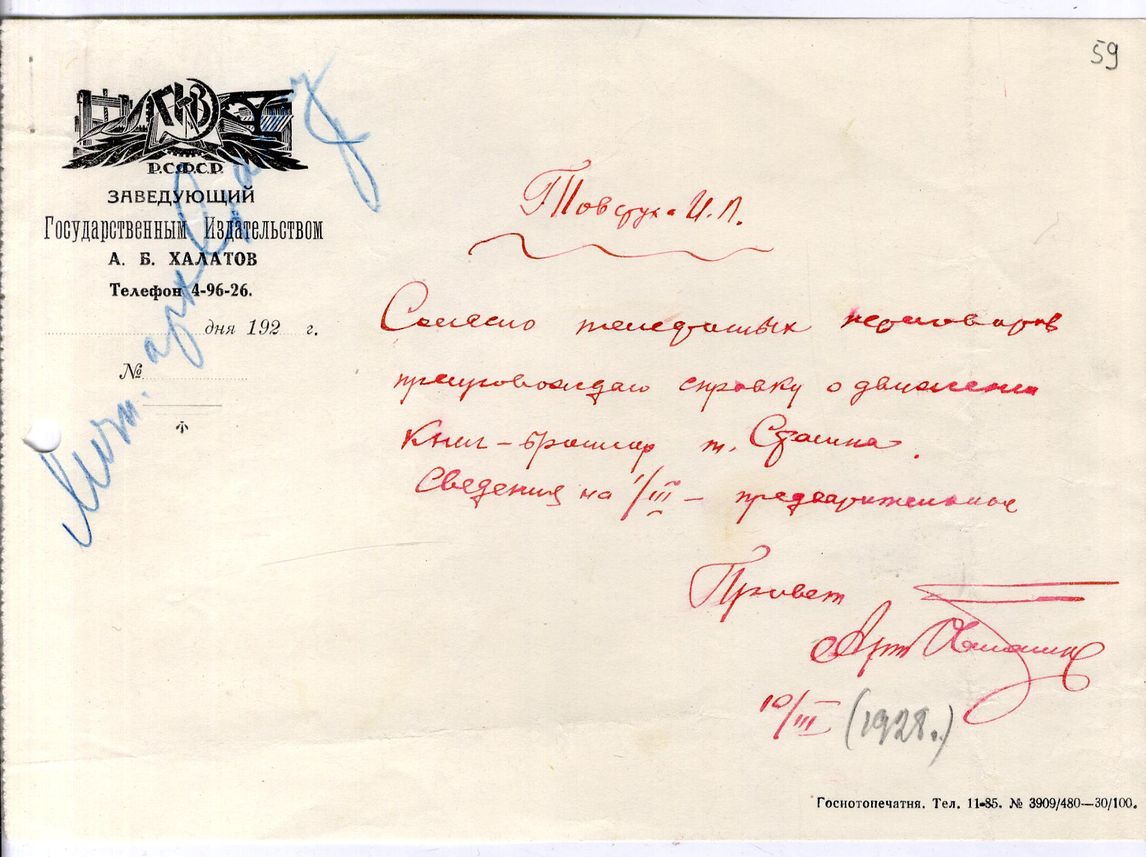 59
ГИЗ
Р.С.Ф.С.Р.
ЗАВЕДУЮЩИЙ
Государственным Издательством
А. Б. ХАЛАТОВ
Телефон 4-96-26.
дня 192 г.
№
Личн. архив
Товстуха И. П.
Согласно телефонных переговоров
препровождаю справку о движении
книг-брошюр т. Сталина.
Сведения на 1/III – предварительные
Привет
Арт Халатов
10/III (1928.)
Госнотопечатня. Тел. 11-85. № 3909/480—30/100.